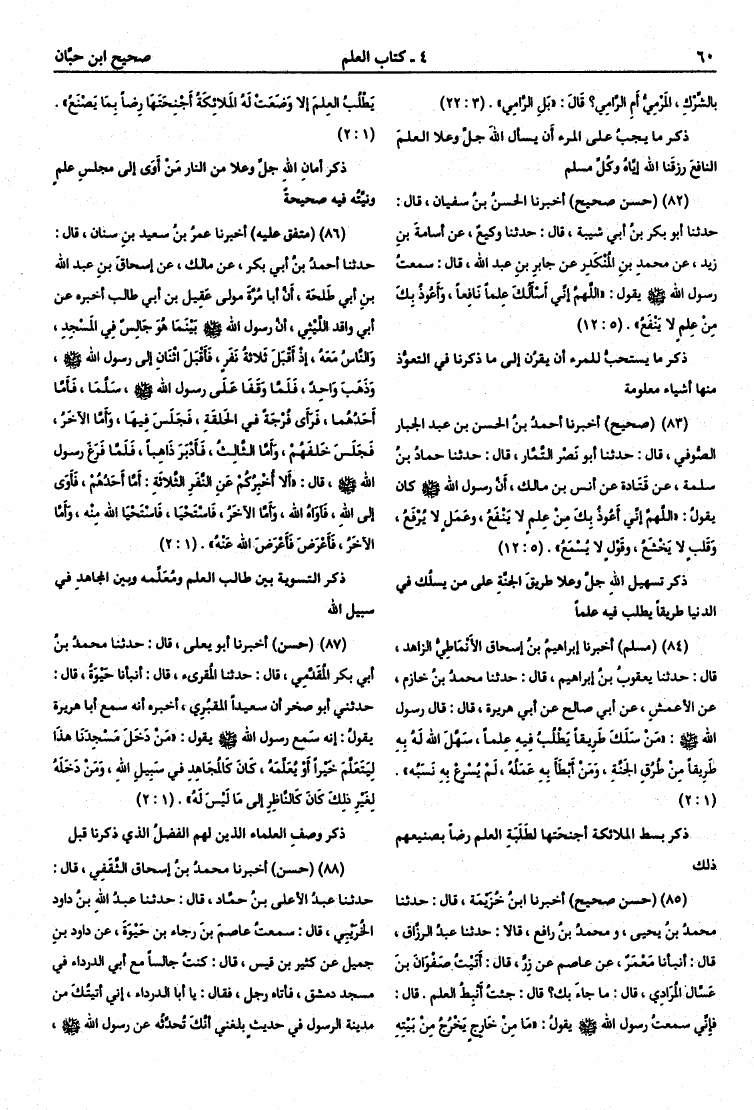 ٦٠
٤ ـ كتاب العلم
صحيح ابن حبّان
بالشِّرْكِ ، المَرْمِيُّ أَمِ الرَّامِي؟ قَالَ : «بَلِ الرَّامِي» . (٣ : ٢٢)
ذكر ما يجبُ على المرءِ أن يسألَ اللهَ جلَّ وعلا العلمَ
النافعَ رزقَنا اللهُ إيّاهُ وكُلَّ مسلم
(٨٢) (حسن صحيح) أخبرنا الحسنُ بنُ سفيان ، قال :
حدثنا أبو بكر بنُ أبي شيبة ، قال : حدثنا وكيعٌ ، عن أسامةَ بنِ
زيد ، عن محمدِ بنِ المُنْكَدِرِ عن جابرِ بنِ عبد الله ، قال : سمعتُ
رسول الله ﷺ يقول : «اللَّهمَّ إنِّي أَسْأَلُكَ علماً نَافعاً ، وَأَعُوذُ بِكَ
مِنْ عِلمٍ لا يَنْفَعُ» . (٥ : ١٢)
ذكر ما يستحبُّ للمرء أن يقرُن إلى ما ذكرنا في التعوُّذ
منها أشياء معلومة
(٨٣) (صحيح) أخبرنا أحمدُ بنُ الحسن بن عبد الجبار
الصُّوفي ، قال : حدثنا أبو نَصْر التَّمَّار ، قال : حدثنا حمادُ بنُ
سلمة ، عن قَتَادة عن أنس بن مالك ، أنَّ رسول الله ﷺ كان
يقولُ : «اللَّهُمَّ إنِّي أَعُوذُ بِكَ مِنْ عِلمٍ لا يَنْفَعُ ، وعَمَلٍ لا يُرْفَعُ ،
وَقَلبٍ لا يَخْشَعُ ، وقَوْلٍ لا يُسْمَعُ» . (٥ : ١٢)
ذكر تسهيلِ اللهِ جلَّ وعلا طريقَ الجنَّةِ على من يسلُك في
الدنيا طريقاً يطلب فيه علماً
(٨٤) (مسلم) أخبرنا إبراهيمُ بنُ إسحاق الأنْماطيُّ الزاهد ،
قال : حدثنا يعقوبُ بنُ إبراهيم ، قال : حدثنا محمدُ بنُ خازم ،
عن الأعمش ، عن أبي صالح عن أبي هريرة ، قال : قال رسول
الله ﷺ : «مَنْ سَلَكَ طَرِيقاً يَطْلُبُ فيهِ علماً ، سَهَّلَ اللهُ لَهُ بِهِ
طَرِيقاً مِنْ طُرُقِ الجَنَّةِ ، وَمَنْ أَبْطَأَ بِهِ عَمَلُهُ ، لَمْ يُسْرِعْ بِهِ نَسَبُهُ» .
(١ : ٢)
ذكر بسط الملائكة أجنحتَها لطَلَبَةِ العلم رضاً بصنيعهم
ذلك
(٨٥) (حسن صحيح) أخبرنا ابنُ خُزَيْمَة ، قال : حدثنا
محمدُ بنُ يحيى ، و محمدُ بنُ رافع ، قالا : حدثنا عبدُ الرزَّاق ،
قال : أنبأنا مَعْمَرٌ ، عن عاصم عن زِرٍّ ، قال : أَتَيْتُ صَفْوَانَ بنَ
عَسَّال المُرَادي ، قال : ما جاءَ بك؟ قال : جئتُ أُنْبِطُ العلم . قال :
فإنِّي سمعتُ رسول الله ﷺ يقولُ : «مَا مِنْ خَارِجٍ يَخْرُجُ مِنْ بَيْتِهِ
يَطْلُبُ العِلمَ إلا وَضَعَتْ لَهُ المَلائكَةُ أَجْنِحَتَهَا رِضاً بِمَا يَصْنَعُ» .
(١ : ٢)
ذكر أمانِ اللهِ جلَّ وعلا من النار مَنْ أَوَى إلى مجلسِ علمٍ
ونيَّتُه فيه صحيحةٌ
(٨٦) (متفق عليه) أخبرنا عمرُ بنُ سعيد بنِ سنان ، قال :
حدثنا أحمدُ بنُ أبي بكر ، عن مالك ، عن إسحاق بنِ عبد الله
بنِ أبي طَلحَة ، أنَّ أبا مُرَّةَ مولى عَقِيل بن أبي طالب أخبره عن
أبي واقد اللَّيْثي ، أنَّ رسول الله ﷺ بَيْنَمَا هُوَ جَالِسٌ في المَسْجدِ ،
وَالنَّاسُ مَعَهُ ، إذْ أَقْبَلَ ثَلاثَةُ نَفَرٍ ، فَأَقْبَلَ اثْنَانِ إلى رسول الله ﷺ ،
وَذَهَبَ وَاحِدٌ ، فَلَمَّا وَقَفَا عَلَى رسول الله ﷺ ، سَلَّمَا ، فَأَمَّا
أَحَدُهُما ، فَرَأَى فُرْجَةً في الحَلقَةِ ، فَجَلَسَ فِيهَا ، وَأَمَّا الآخَرُ ،
فَجَلَسَ خَلفَهُمْ ، وَأَمَّا الثَّالِثُ ، فَأَدْبَرَ ذَاهِباً ، فَلَمَّا فَرَغَ رسول
الله ﷺ ، قال : «أَلا أُخْبِرُكُمْ عَنِ النَّفَرِ الثَّلاثَةِ : أَمَّا أَحَدُهُمْ ، فَأَوَى
إلى اللهِ ، فَآوَاهُ اللهُ ، وَأَمَّا الآخَرُ ، فَاسْتَحْيَا ، فَاسْتَحْيَا اللهُ مِنْه ، وَأَمَّا
الآخَرُ ، فَأَعْرَضَ فَأَعْرَضَ اللهُ عَنْهُ» . (١ : ٢)
ذكر التسويةِ بين طالب العلم ومُعَلِّمه وبين المجاهدِ في
سبيل الله
(٨٧) (حسن) أخبرنا أبو يعلى ، قال : حدثنا محمدُ بنُ
أبي بكر المُقَدَّمِي ، قال : حدثنا المقرىء ، قال : أنبأنا حَيْوَةُ ، قال :
حدثني أبو صخر أن سعيداً المَقبُري ، أخبره أنه سمع أبا هريرة
يقولُ : إنه سَمع رسول الله ﷺ يقول : «مَنْ دَخَلَ مَسْجِدَنَا هذَا
لِيَتَعَلَّمَ خَيْراً أَوْ يُعَلِّمَهُ ، كَانَ كَالمُجَاهِدِ في سَبِيلِ اللهِ ، وَمَنْ دَخَلَهُ
لِغَيْرِ ذلِكَ كَانَ كَالنَّاظِرِ إلى مَا لَيْسَ لَهُ» . (١ : ٢)
ذكر وصفِ العلماء الذين لهم الفضلُ الذي ذكرنا قبل
(٨٨) (حسن) أخبرنا محمدُ بنُ إسحاق الثَّقَفي ، قال :
حدثنا عبدُ الأعلى بنُ حمَّاد ، قال : حدثنا عبدُ اللهِ بنُ داود
الخُرَيْبي ، قال : سمعتُ عاصمَ بنَ رجاء بنِ حَيْوَةَ ، عن داود بنِ
جميل عن كثير بن قيس ، قال : كنتُ جالساً مع أبي الدرداء في
مسجد دمشق ، فأتاه رجل ، فقال : يا أبا الدرداء ، إني أتيتُكَ من
مدينة الرسول في حديثٍ بلغني أنَّكَ تُحدثُه عن رسول الله ﷺ ،